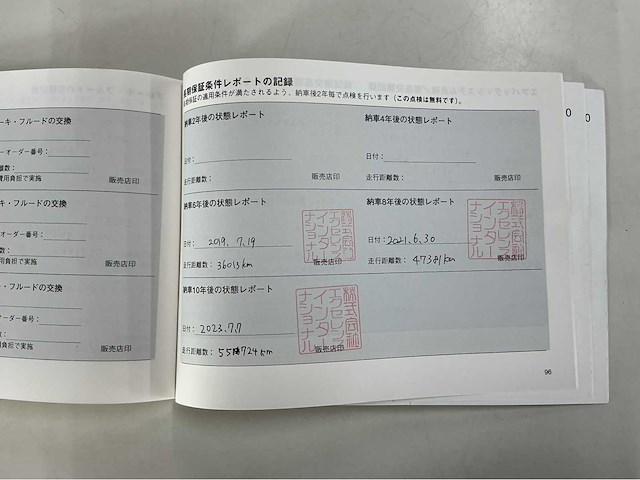 ーキ・フルードの交換
ーオーダー番号：
離数：
費用負担で実施
販売店印
キ・フルードの交換
オーダー番号：
離数：
用負担で実施
販売店印
・フルードの交換
オーダー番号：
数：
負担で実施
販売店印
長期保証条件レポートの記録
長期保証の適用条件が満たされるよう、納車後2年毎で点検を行います（この点検は無料です）。
納車2年後の状態レポート
日付：
走行距離数：
販売店印
納車4年後の状態レポート
日付：
走行距離数：
販売店印
納車6年後の状態レポート
日付： 2019. 7.19
走行距離数： 36013km
販売店印
株式会社
エクセレンス
インター
ナショナル
納車8年後の状態レポート
日付： 2021.6.30
走行距離数： 47381km
販売店印
株式会社
エクセレンス
インター
ナショナル
納車10年後の状態レポート
日付： 2023.7.7
走行距離数： 55724km
販売店印
株式会社
エクセレンス
インター
ナショナル
96
0
0